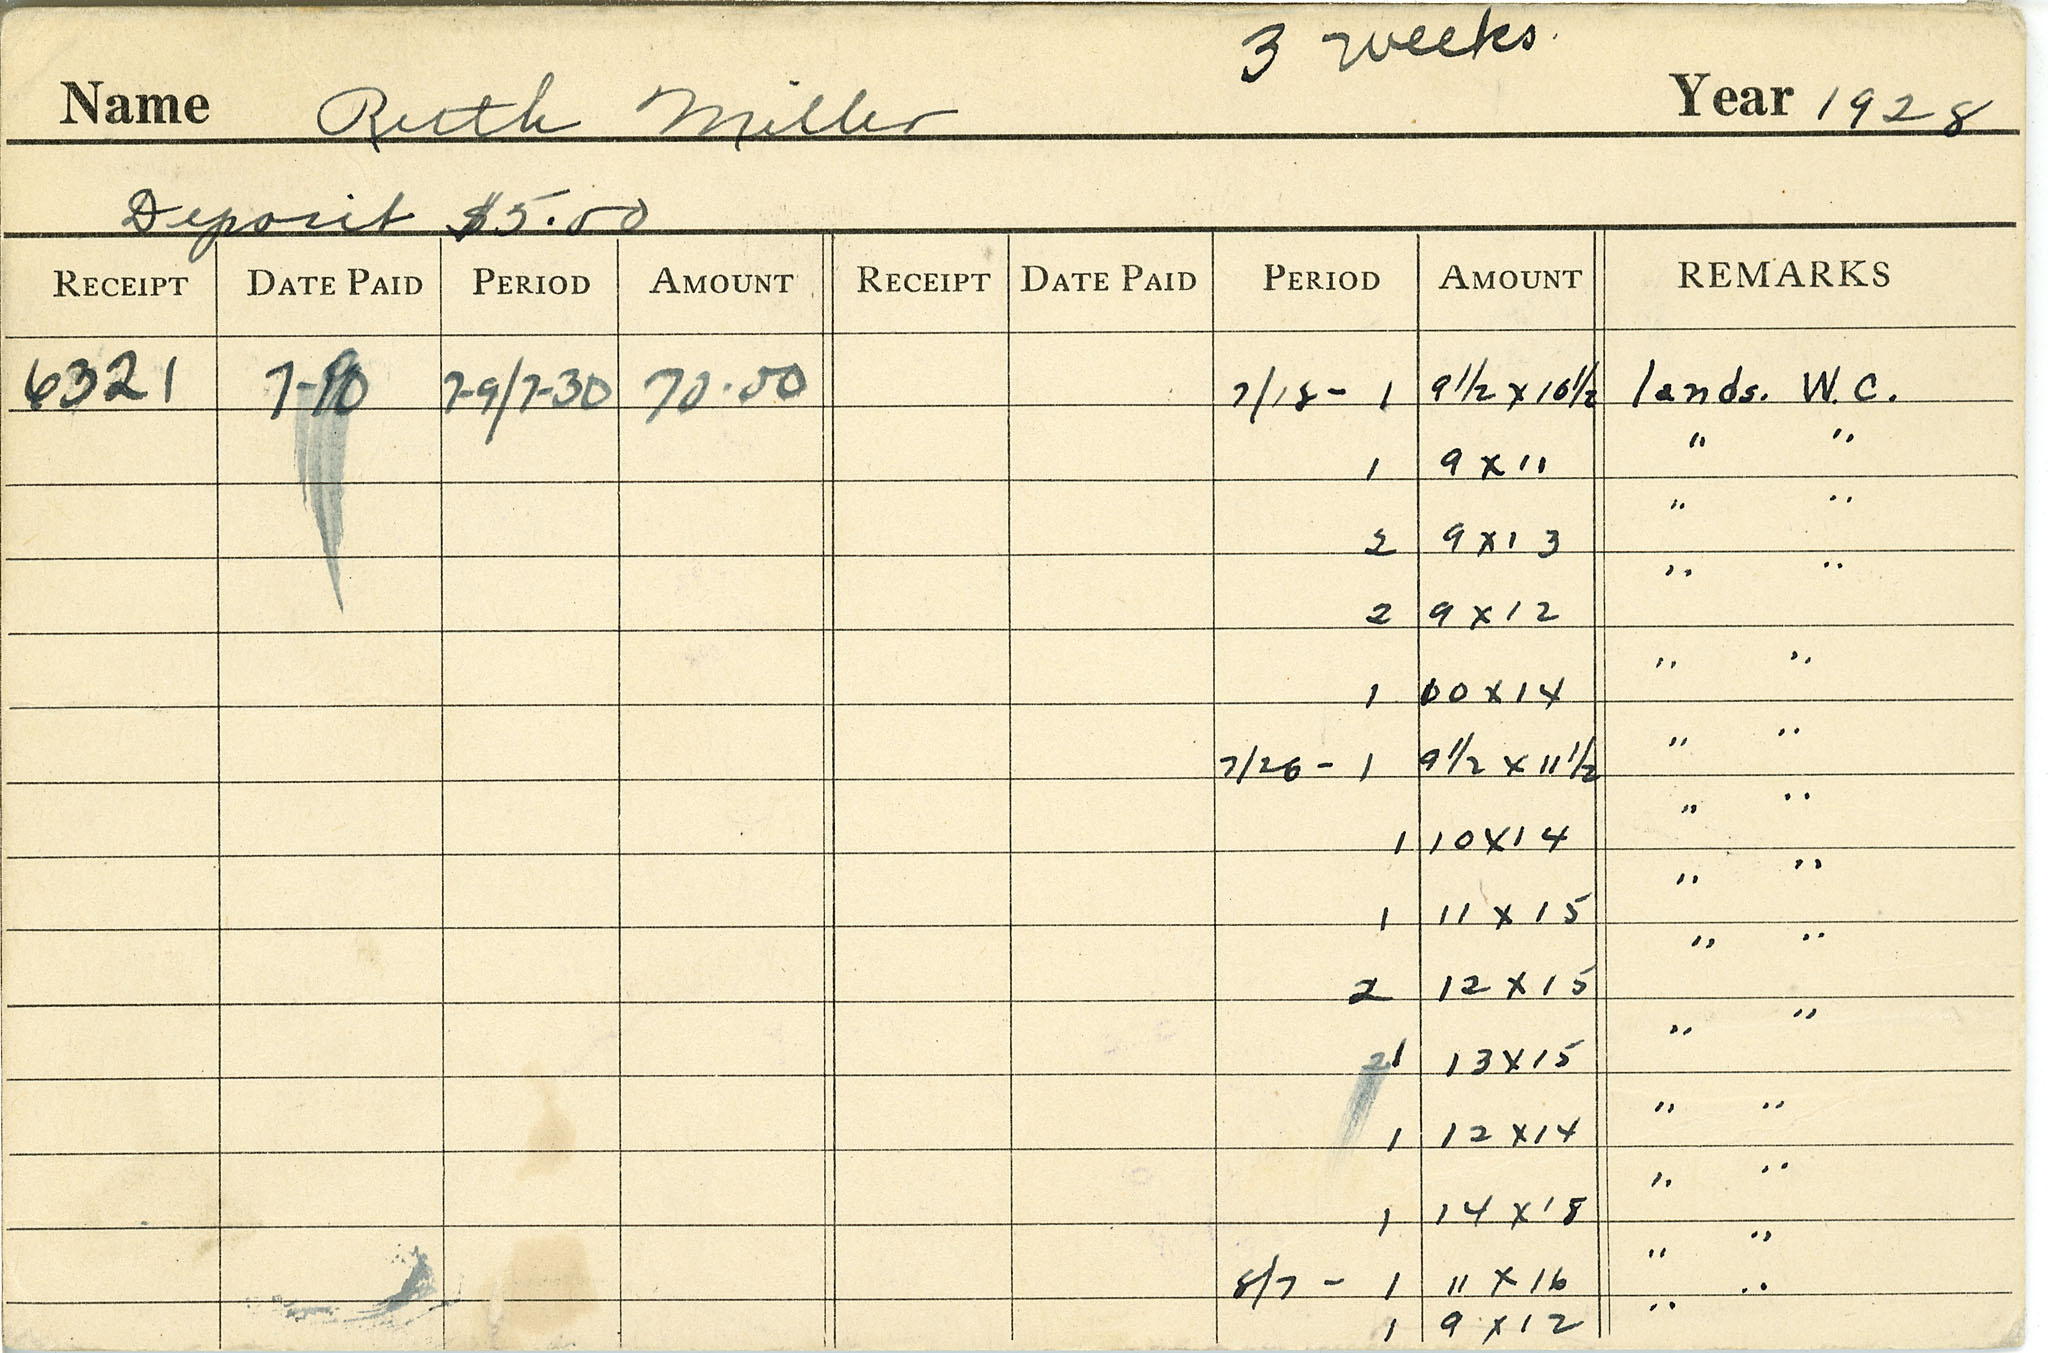 3 weeks.
Name Ruth Miller Year 1928
Deposit $5.00
RECEIPT DATE PAID PERIOD AMOUNT RECEIPT DATE PAID PERIOD AMOUNT REMARKS
6321 7-9/7-30 70.00 7/18 - 1 9 1/2 x 10 1/2 lands. W.C.
1 9 x 11 " "
2 9 x 13 " "
2 9 x 12 " "
1 10 x 14 " "
7/26 - 1 9 1/2 x 11 1/2 " "
1 10 x 14 " "
1 11 x 15 " "
2 12 x 15 " "
1 13 x 15 " "
1 12 x 14 " "
1 14 x 18 " "
8/7 - 1 11 x 16 " "
1 9 x 12 " "